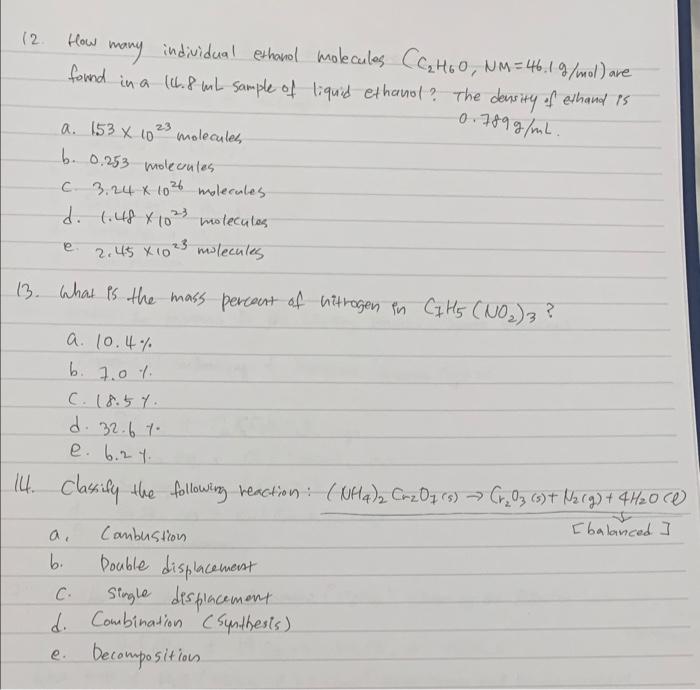 12. How many individual ethanol molecules (C₂H₆O, NM=46.1g/mol) are
found in a 14.8 mL sample of liquid ethanol? The density of ethanol is
0.789g/mL.
a. 153 × 10²³ molecules
b. 0.253 molecules
c. 3.24 × 10²⁶ molecules
d. 1.48 × 10²³ molecules
e. 2.45 × 10²³ molecules
13. What is the mass percent of nitrogen in C₇H₅(NO₂)₃?
a. 10.4%
b. 7.0%.
c. 18.5%.
d. 32.6%.
e. 6.2%.
14. Classify the following reaction: (NH₄)₂Cr₂O₇(s) → Cr₂O₃(s) + N₂(g) + 4H₂O(l)
[balanced]
a. Combustion
b. Double displacement
c. Single displacement
d. Combination (Synthesis)
e. Decomposition